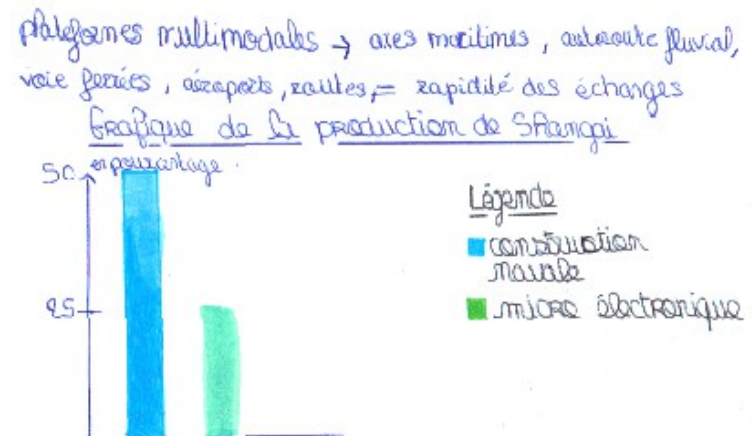 plateformes multimodales → axes maritimes, autoroute fluvial,
voie ferrées, aéroports, routes, = rapidité des échanges
Grafique de la production de Shangai
en pourcentage.
50
25
Légende
construction
navale
micro électronique